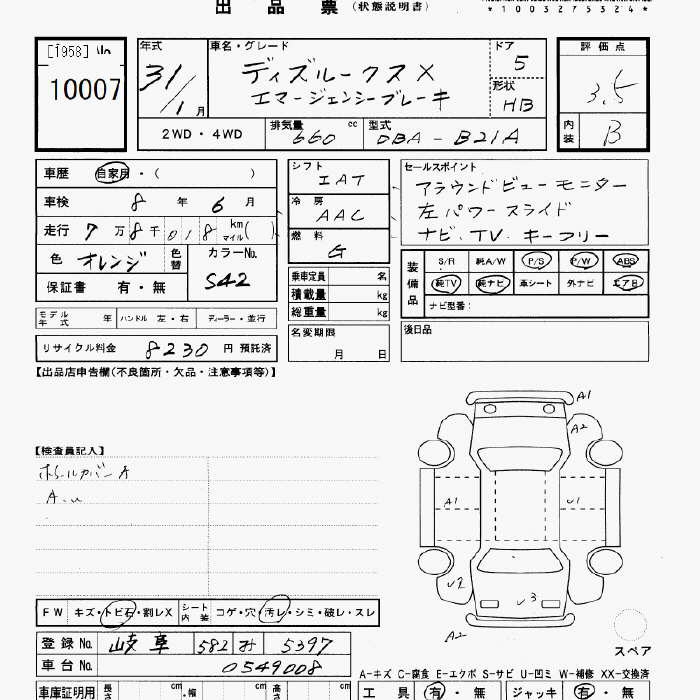 出品票 (状態説明書)
*1003275324*
[1958]
10007
年式 31/1月
車名・グレード
ディズルークスX
エマージェンシーブレーキ
ドア 5
形状 HB
2WD・4WD
排気量 660 cc
型式 DBA-B21A
評価点 3.5
内装 B
車歴 自家用・( )
車検 8年 6月
走行 7万8千018 km マイル( )
色 オレンジ 色替
カラーNo. S42
保証書 有・無
モデル年式 年 ハンドル 左・右 ディーラー・並行
リサイクル料金 8230 円 預託済
シフト IAT
冷房 AAC
燃料 G
乗車定員 名
積載量 kg
総重量 kg
名変期限 月 日
セールスポイント
アラウンドビューモニター
左パワースライド
ナビ、TV、キーフリー
装備品
S/R 純A/W P/S P/W ABS
純TV 純ナビ 革シート 外ナビ エアB
ナビ型番:
後日品
【出品店申告欄(不良箇所・欠品・注意事項等)】
【検査員記入】
A1
A2
A1
U1
U2
U3
A2
スペア
FW キズ・トビ石・割レX シート内装 コゲ・穴・汚レ・シミ・破レ・スレ
登録No. 岐阜 582 み 5397
車台No. 0549008
A-キズ C-腐食 E-エクボ S-サビ U-凹ミ W-補修 XX-交換済
車庫証明用 長さ cm ・幅 cm 高さ cm
工具 有・無 ジャッキ 有・無